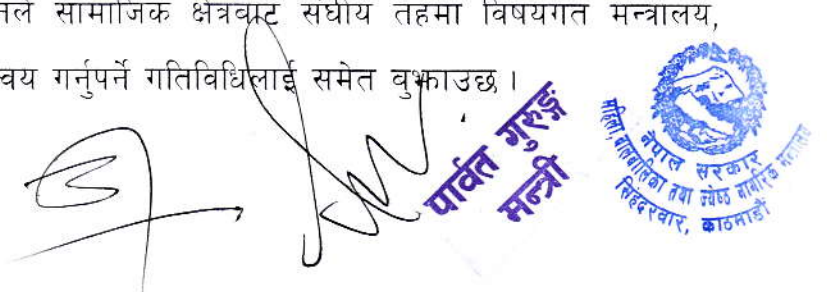 नले सामाजिक क्षेत्रबाट संघीय तहमा विषयगत मन्त्रालय,
वय गर्नुपर्ने गतिविधिलाई समेत वुझाउछ ।
पार्वत गुरुङ्ग
मन्त्री
नेपाल सरकार
महिला, बालबालिका तथा ज्येष्ठ नागरिक मन्त्रालय
सिंहदरवार, काठमाडौं